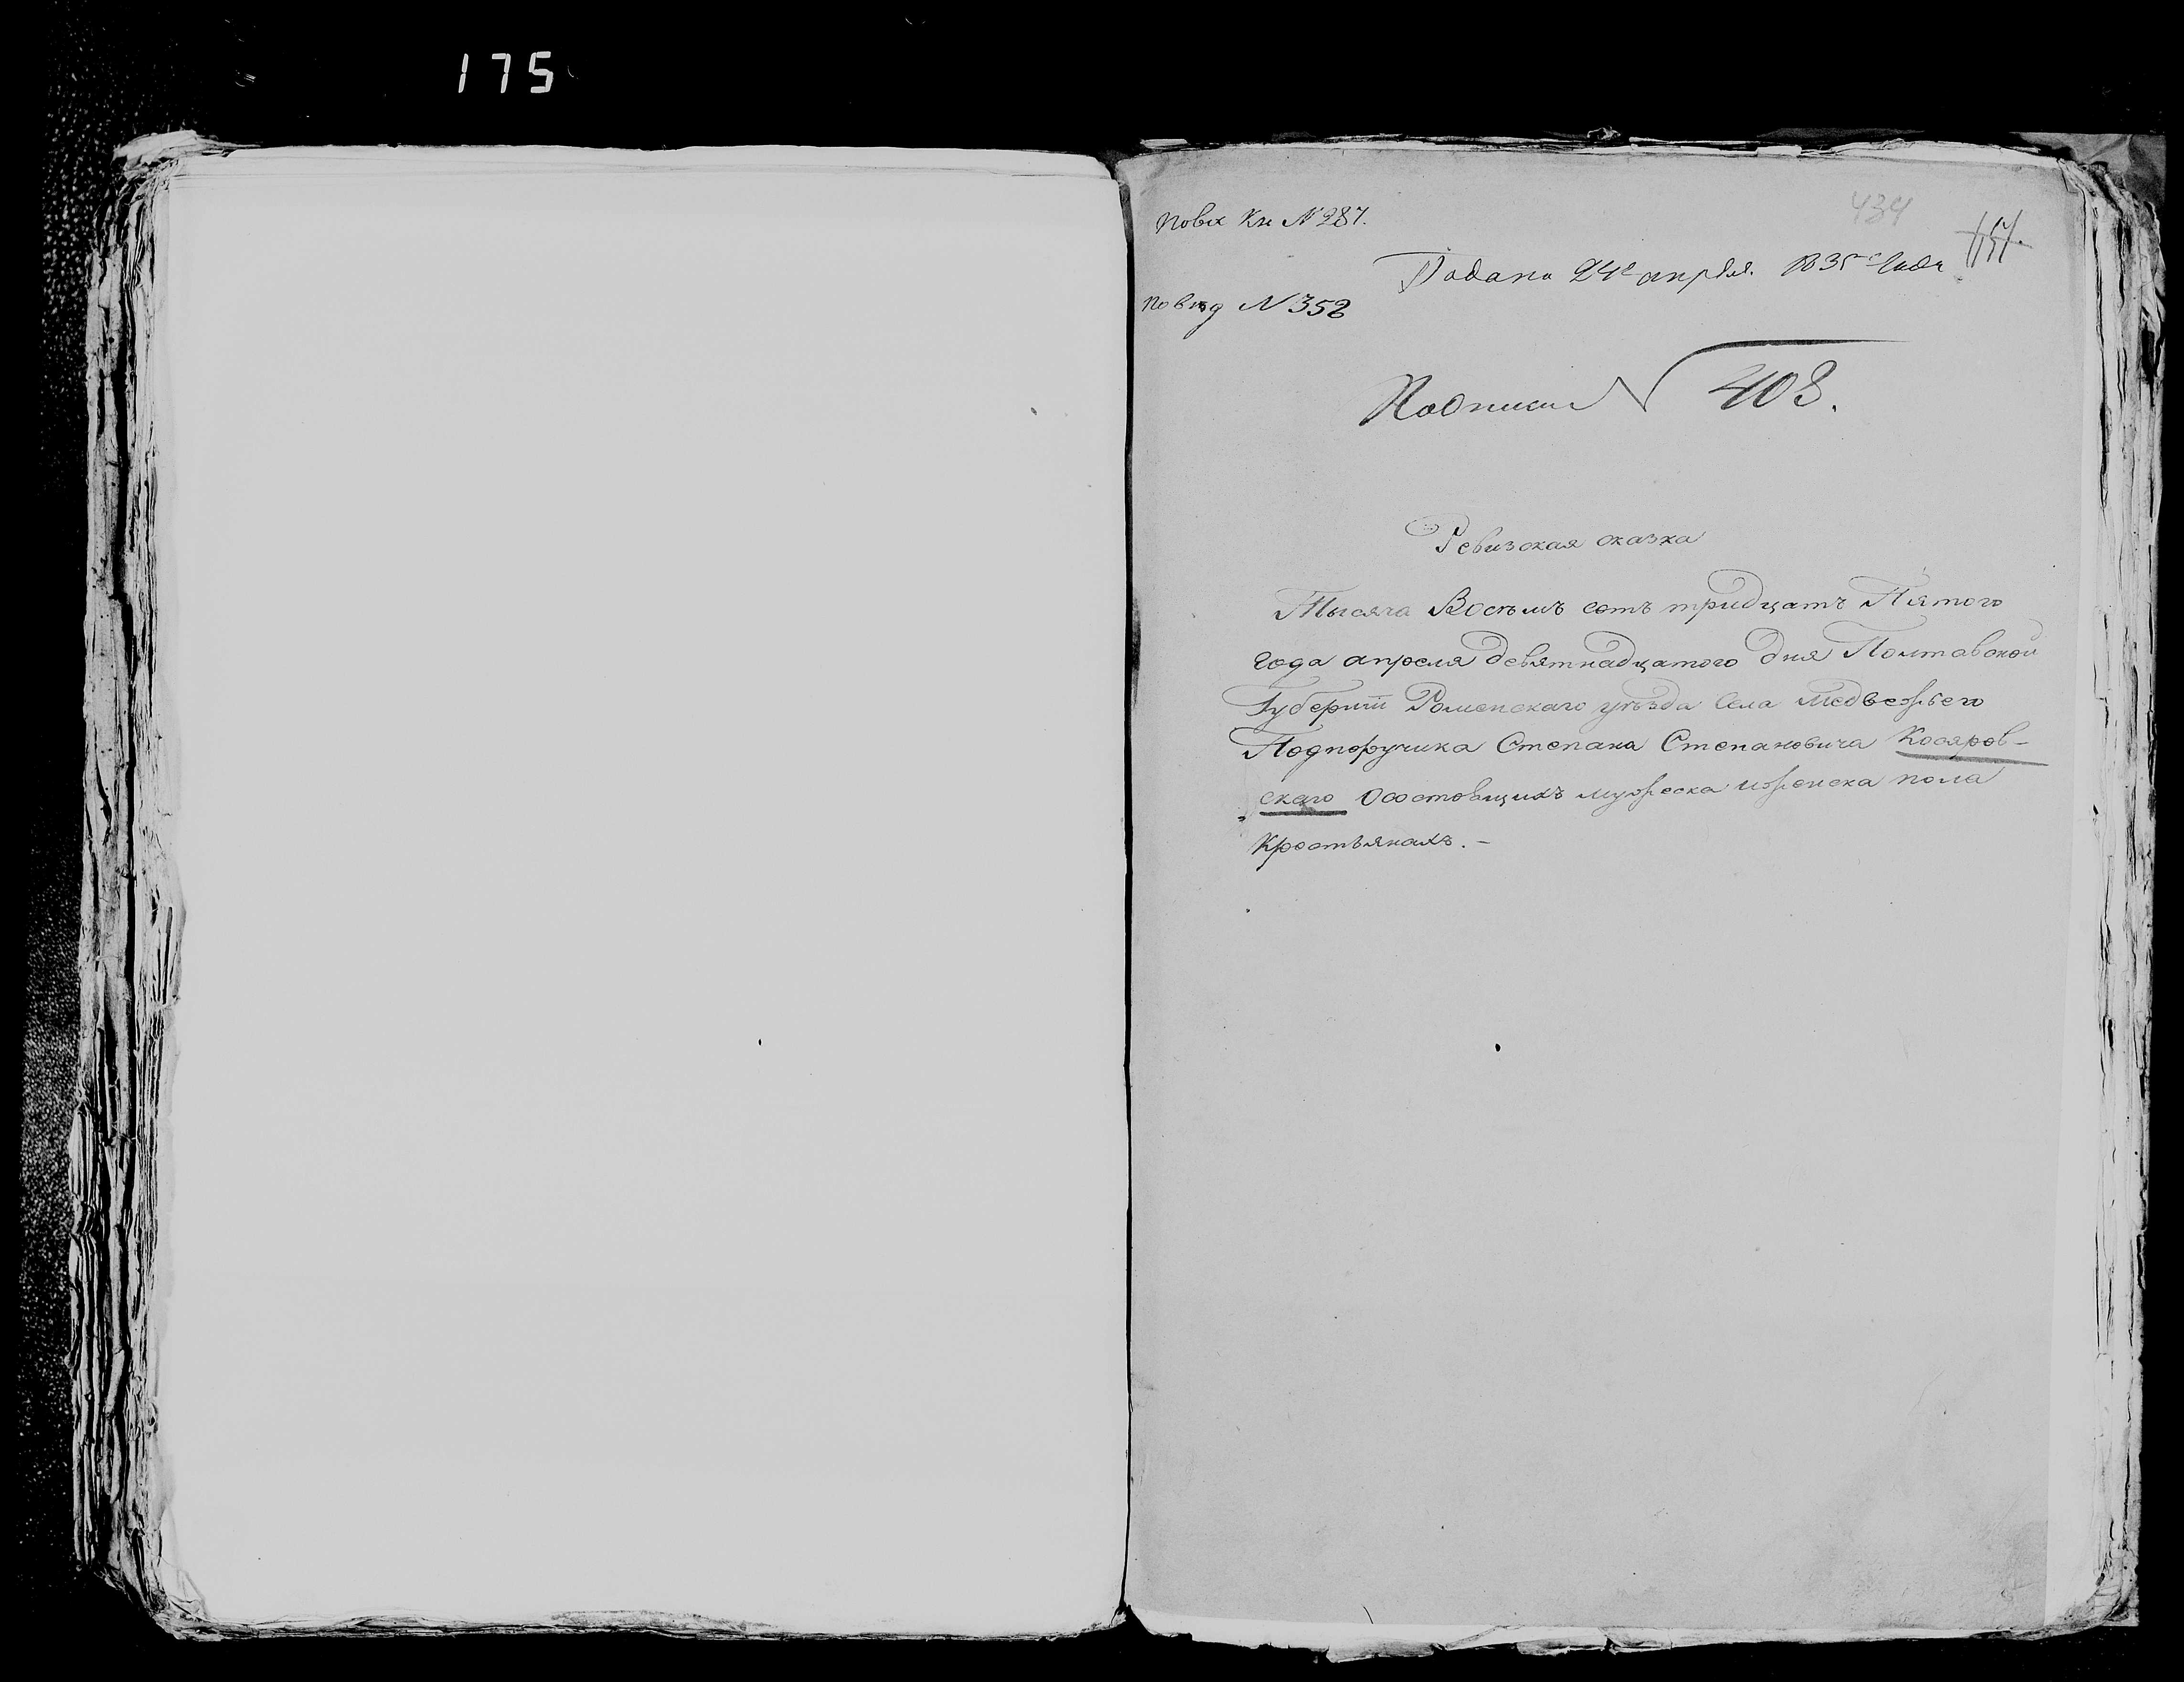 175
434
По вх Кн № 287.
Подана 24е апреля. 1835 года
По вѣд № 352
По описи № 408.
Ревизская сказка
Тысяча Восѣмъ сотъ тридцатъ Пятого
года апреля девятнадцатого дня Полтавской
Губернии Роменскаго уѣзда Села Медвежьего
Подпоручика Степана Степановича Косяров-
скаго О состоящихъ мужеска и женска пола
Крестьянахъ. -